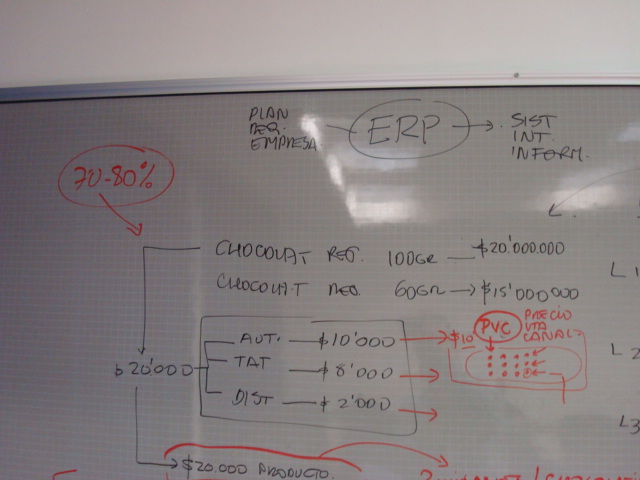 PLAN
REQ.
EMPRESA
ERP
SIST
INT.
INFORM.
70-80%
CHOCOLAT REF. 100GR $20'000.000
CHOCOLAT 60GR $15'000000
L 1
AUT. $10'000 $10 PVC PRECIO
VTA
CANAL
TAT $8'000
L 2
$20'000
DIST $2'000
L3
$20.000 PRODUCTO